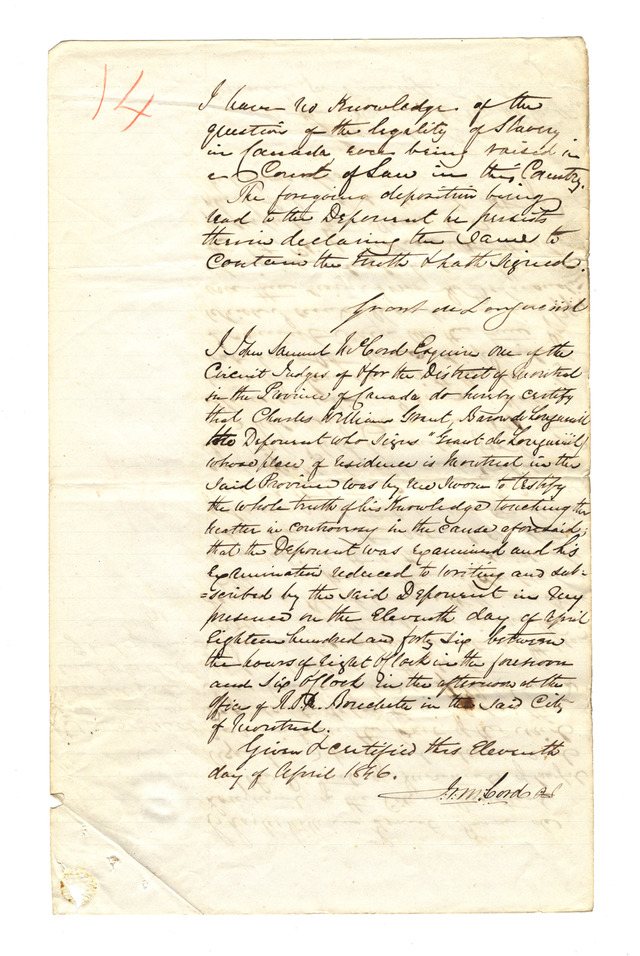 14
I have no Knowledge of the
question of the legality of Slavery
in Canada ever being raised in
a Court of Law in this Country.
The foregoing deposition being
read to the Deponent he persists
therein declaring the same to
contain the truth & hath signed.
Grant de Longueuil
I John Samuel McCord Esquire one of the
Circuit Judges of & for the District of Montreal
in the Province of Canada do hereby certify
that Charles William Grant, Baron de Longueuil
the Deponent who signs "Grant de Longueuil"
whose place of residence is Montreal in the
said Province was by me sworn to testify
the whole truth of his Knowledge touching the
matter in controversy in the cause aforesaid;
that the Deponent was examined and his
examination reduced to writing and sub-
=scribed by the said Deponent in my
presence on the Eleventh day of April
Eighteen hundred and forty six between
the hours of eight O'Clock in the forenoon
and six O'Clock in the afternoon at the
Office of R. S. M. Bouchette in the said City
of Montreal.
Given & certified this Eleventh
day of April 1846.
J. S. McCord